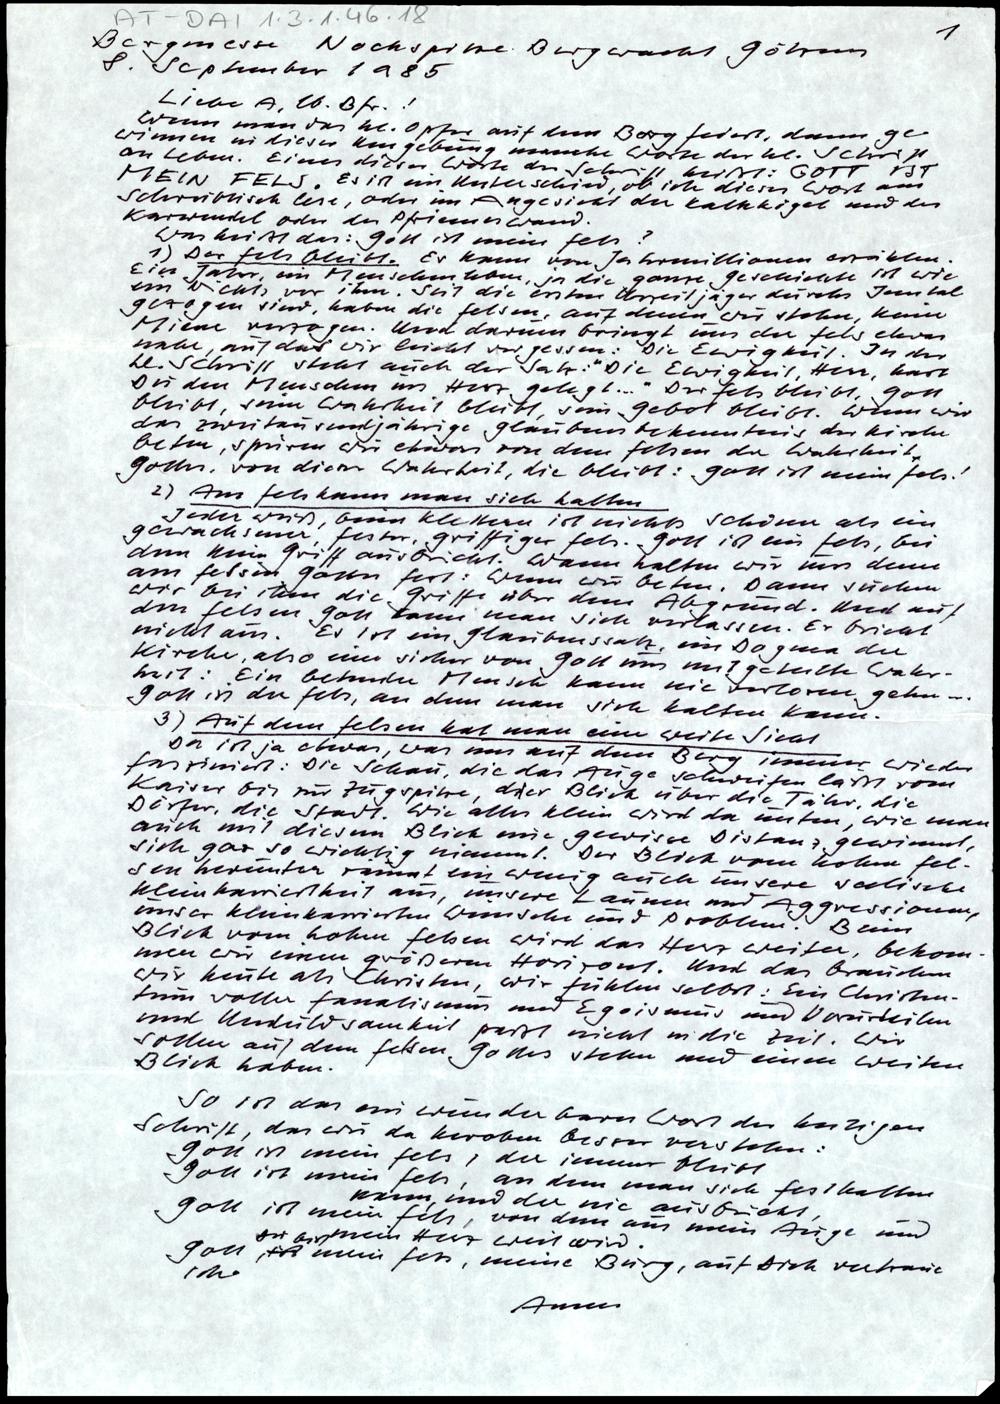 AT-DAI 1.3.1.46.18
1
Bergmesse Nockspitze Bergwacht Götzens
8. September 1985
Liebe A, lb. Bfr. !
Wenn man das hl. Opfer auf dem Berg feiert, dann ge-
winnen in dieser Umgebung manche Worte der hl. Schrift
an Leben. Eines dieser Worte der Schrift heißt: GOTT IST
MEIN FELS. Es ist ein Unterschied, ob ich dieses Wort am
Schreibtisch lese, oder im Angesicht der Kalkkögel und des
Karwendel oder der Pfriemeswand.
Was heißt das: Gott ist mein Fels ?
1) Der Fels bleibt. Er kann von Jahrmillionen erzählen.
Ein Jahr, ein Menschenleben, ja die ganze Geschichte ist wie
ein Nichts vor ihm. Seit die ersten Urzeitjäger durchs Inntal
gezogen sind, haben die Felsen, auf denen wir stehen, keine
Miene verzogen. Und darum bringt uns der Fels etwas
nahe, auf das wir leicht vergessen: Die Ewigkeit. In der
hl. Schrift steht auch der Satz: "Die Ewigkeit, Herr, hast
Du den Menschen ins Herz gelegt..." Der Fels bleibt, Gott
bleibt, seine Wahrheit bleibt, sein Gebot bleibt. Wenn wir
das zweitausendjährige Glaubensbekenntnis der Kirche
beten, spüren wir etwas von dem Felsen der Wahrheit
Gottes, von dieser Wahrheit, die bleibt: Gott ist mein Fels!
2) Am Fels kann man sich halten
Jeder weiß, beim Klettern ist nichts schöner als ein
gewachsener, fester, griffiger Fels. Gott ist ein Fels, bei
dem kein Griff ausbricht. Wann halten wir uns denn
am Felsen Gottes fest: Wenn wir beten. Dann suchen
wir bei ihm die Griffe über dem Abgrund. Und auf
den Felsen Gott kann man sich verlassen. Er bricht
nicht aus. Es ist ein Glaubenssatz, ein Dogma der
Kirche, also eine sicher von Gott uns mitgeteilte Wahr-
heit: Ein betender Mensch kann nie verloren gehn...
Gott ist der Fels, an dem man sich halten kann.
3) Auf dem Felsen hat man eine weite Sicht
Das ist ja etwas, was uns auf dem Berg immer wieder
fasziniert: Die Schau, die das Auge schweifen läßt vom
Kaiser bis zur Zugspitze, der Blick über die Täler, die
Dörfer, die Stadt. Wie alles klein wird da unten, wie man
auch mit diesem Blick eine gewisse Distanz gewinnt,
sich gar so wichtig nimmt. Der Blick vom hohen Fel-
sen herunter räumt ein wenig auch unsere seelische
Kleinkarriertheit aus, unsere Launen und Aggressionen,
unser kleinkarrierten Wünsche und Probleme. Beim
Blick vom hohen Felsen wird das Herz weiter, bekom-
men wir einen größeren Horizont. Und das brauchen
wir heute als Christen, wir fühlen selbst: Ein Christen-
tum voller Fanatismus und Egoismus und Vorurteilen
und Unduldsamkeit paßt nicht in die Zeit. Wir
sollen auf dem Felsen Gottes stehen und einen weiten
Blick haben.
So ist das ein wunderbares Wort der heiligen
Schrift, das wir da heroben besser verstehen:
Gott ist mein Fels, der immer bleibt
Gott ist mein Fels, an dem man sich festhalten
kann, und der nie ausbricht,
Gott ist mein Fels, von dem aus mein Auge und
mein Herz weit wird.
Gott Du bist mein Fels, meine Burg, auf Dich vertraue
ich.
Amen